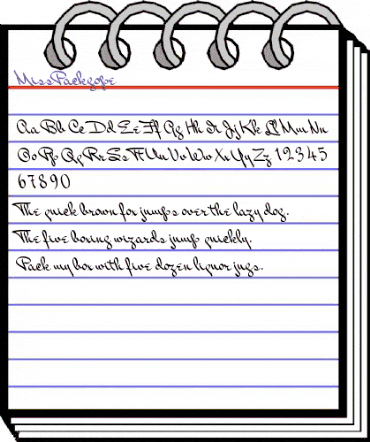 MissPackgope
Aa Bb Cc Dd Ee Ff Gg Hh Ii Jj Kk Ll Mm Nn
Oo Pp Qq Rr Ss Tt Uu Vv Ww Xx Yy Zz 1 2 3 4 5
6 7 8 9 0
The quick brown fox jumps over the lazy dog.
The five boxing wizards jump quickly.
Pack my box with five dozen liquor jugs.